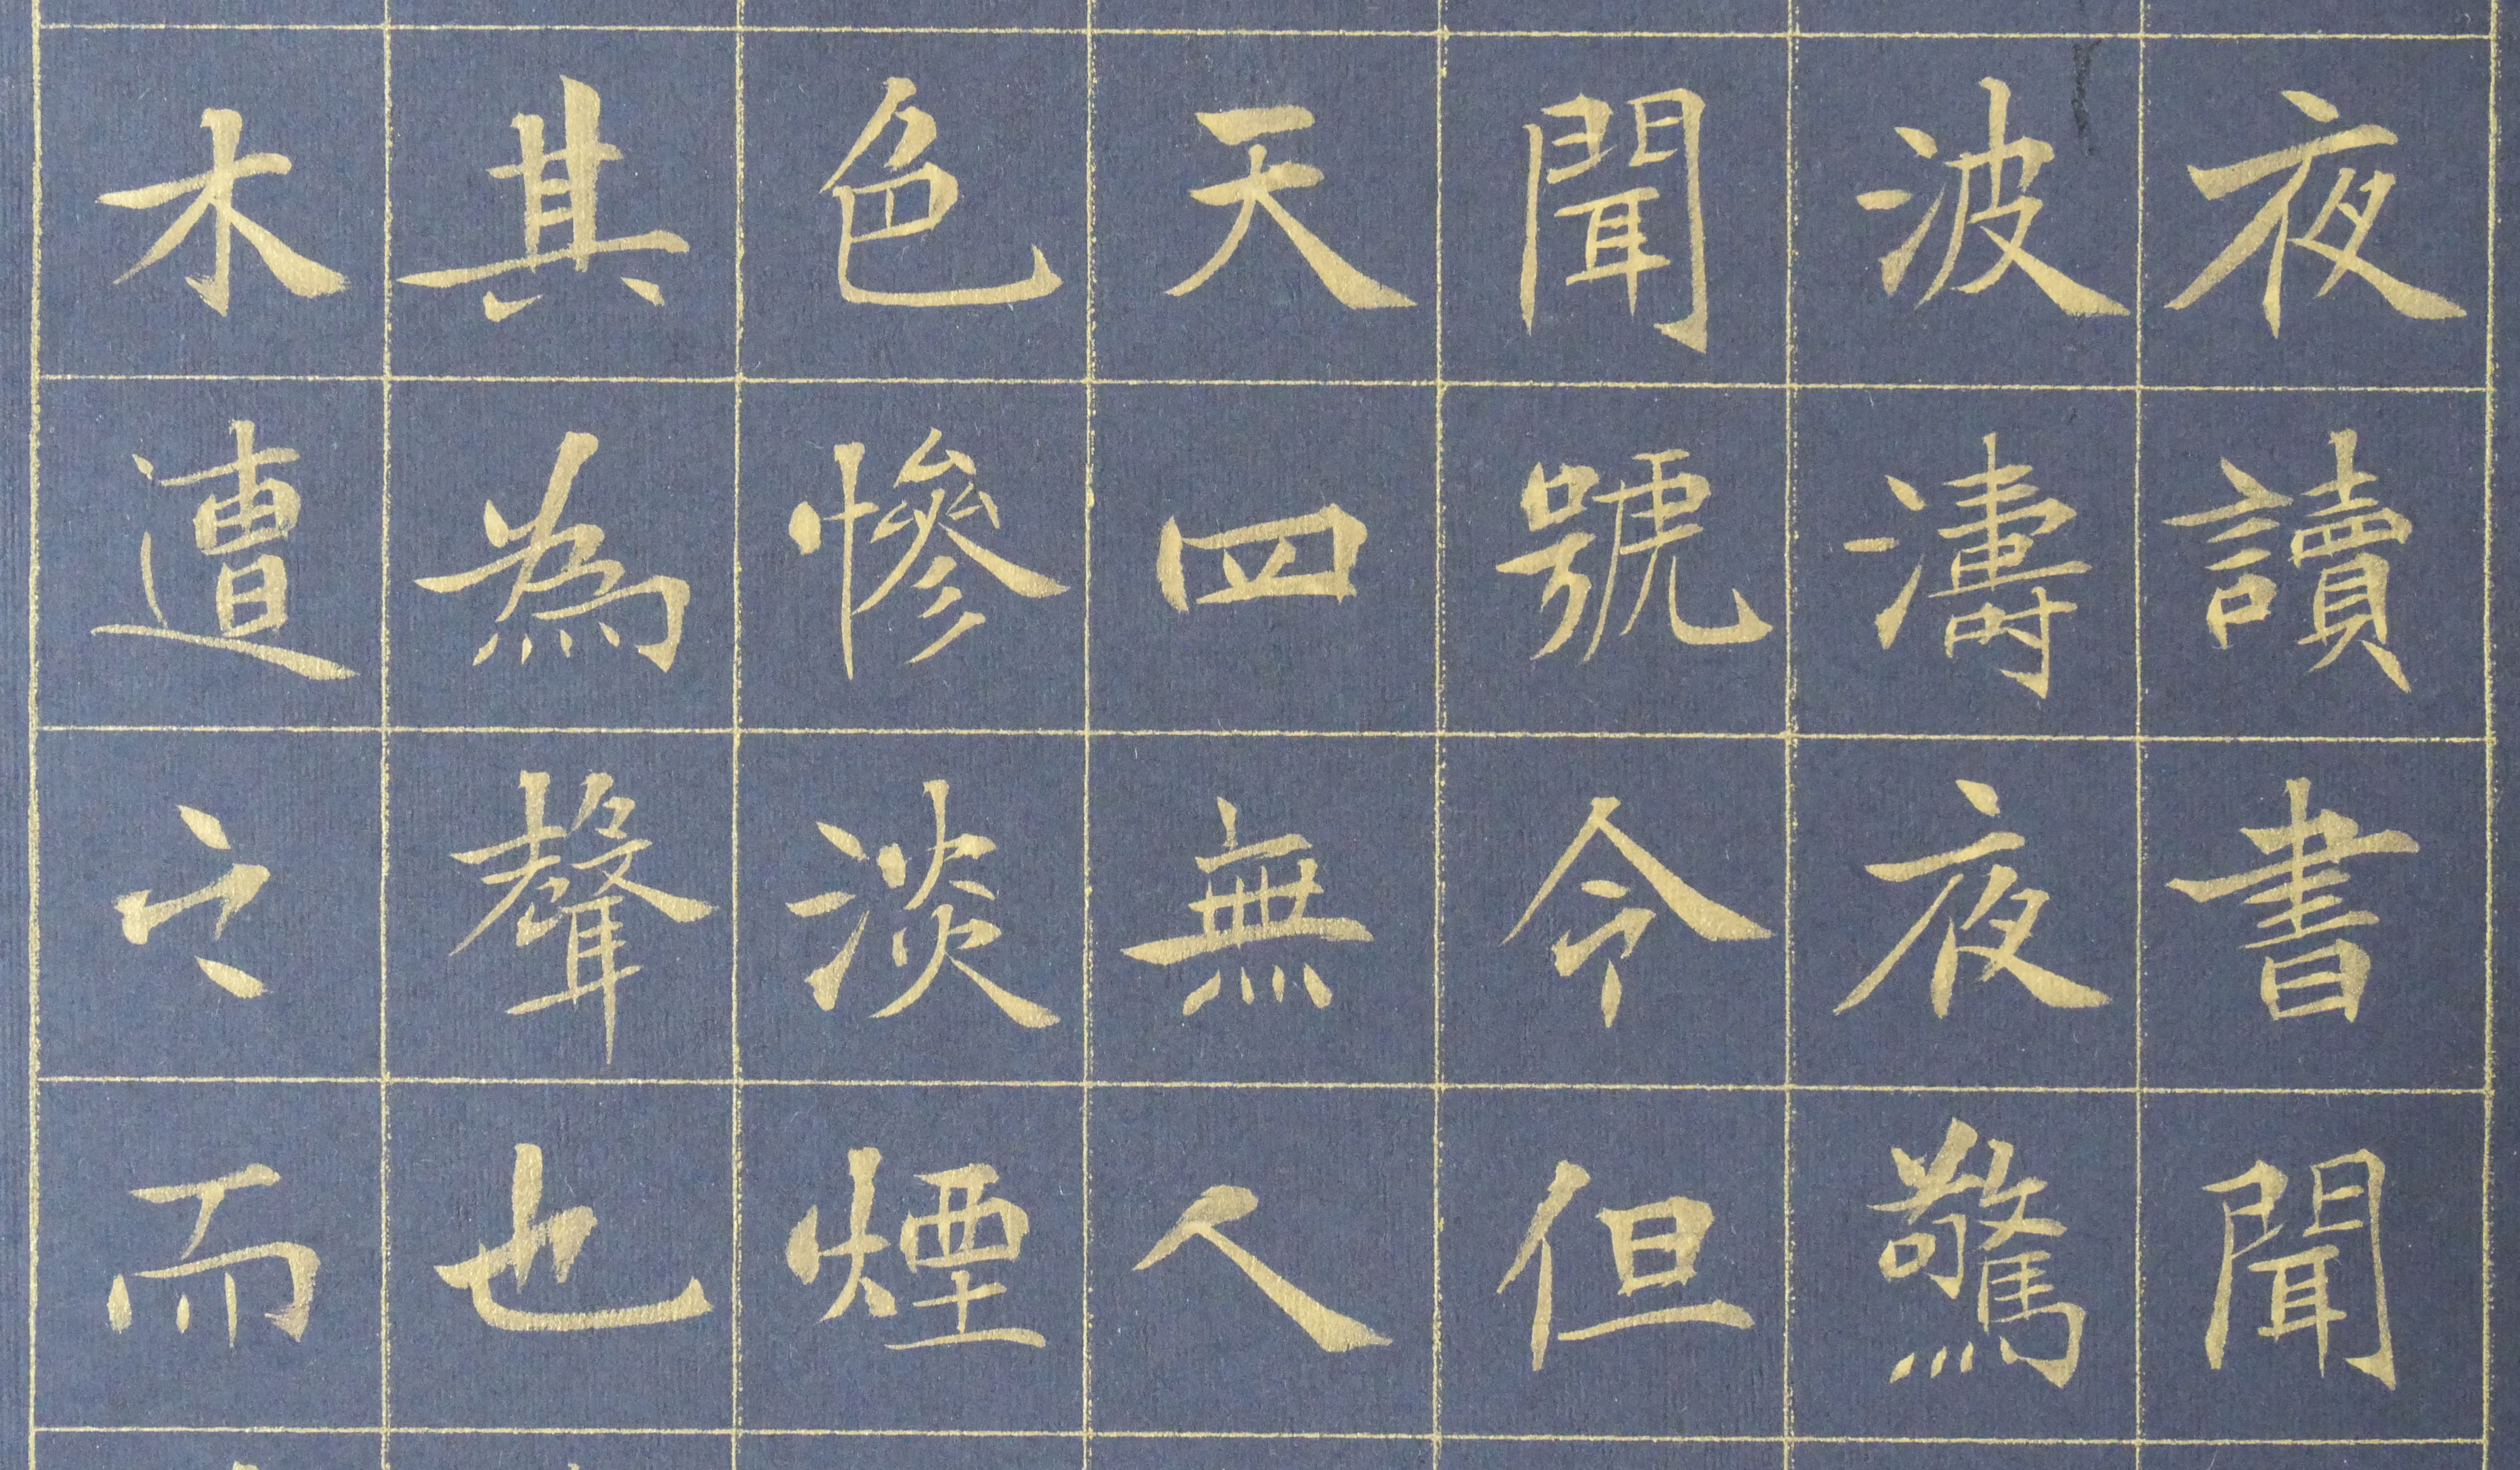 夜讀書聞
波濤夜驚
聞號令但
天四無人
色慘淡煙
其為聲也
木遭之而